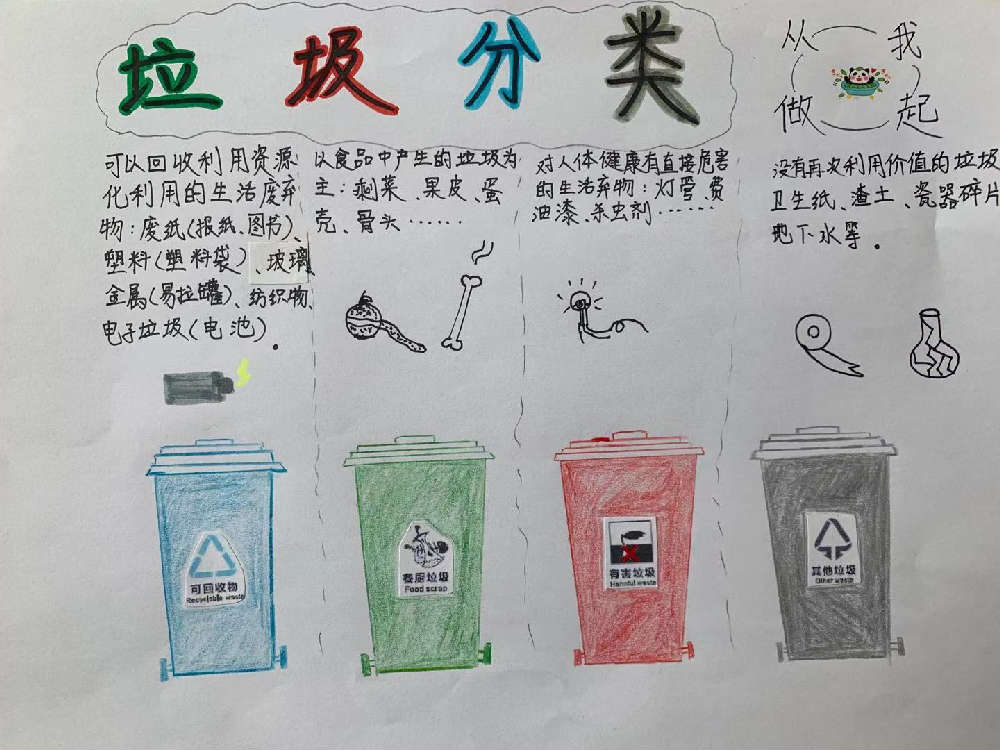 垃圾分类
从我
做起
可以回收利用资源
化利用的生活废弃
物：废纸(报纸、图书)、
塑料(塑料袋)、玻璃
金属(易拉罐)、纺织物、
电子垃圾(电池)。
以食品中产生的垃圾为
主：剩菜、果皮、蛋
壳、骨头……
对人体健康有直接危害
的生活弃物：灯管、费
油漆、杀虫剂……
没有再次利用价值的垃圾
卫生纸、渣土、瓷器碎片
地下水等。
可回收物
Recyclable waste
餐厨垃圾
Food scrap
有害垃圾
Harmful waste
其他垃圾
Other waste